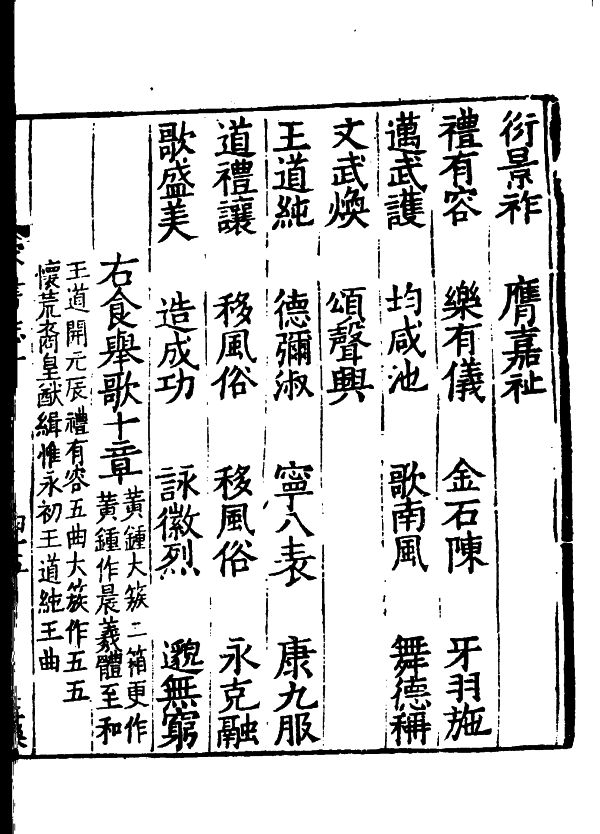 衍景祚 膺嘉祉
禮有容 樂有儀 金石陳 牙羽施
邁武護 均咸池 歌南風 舞德稱
文武煥 頌聲興
王道純 德彌淑 寧八表 康九服
道禮讓 移風俗 移風俗 永克融
歌盛美 造成功 詠徽烈 邈無窮
右食舉歌十章
黃鍾大簇二箱更作
黃鍾作晨羲體至和
王道開元辰禮有容五曲大簇作五五
懷荒裔皇猷緝惟永初王道純王曲